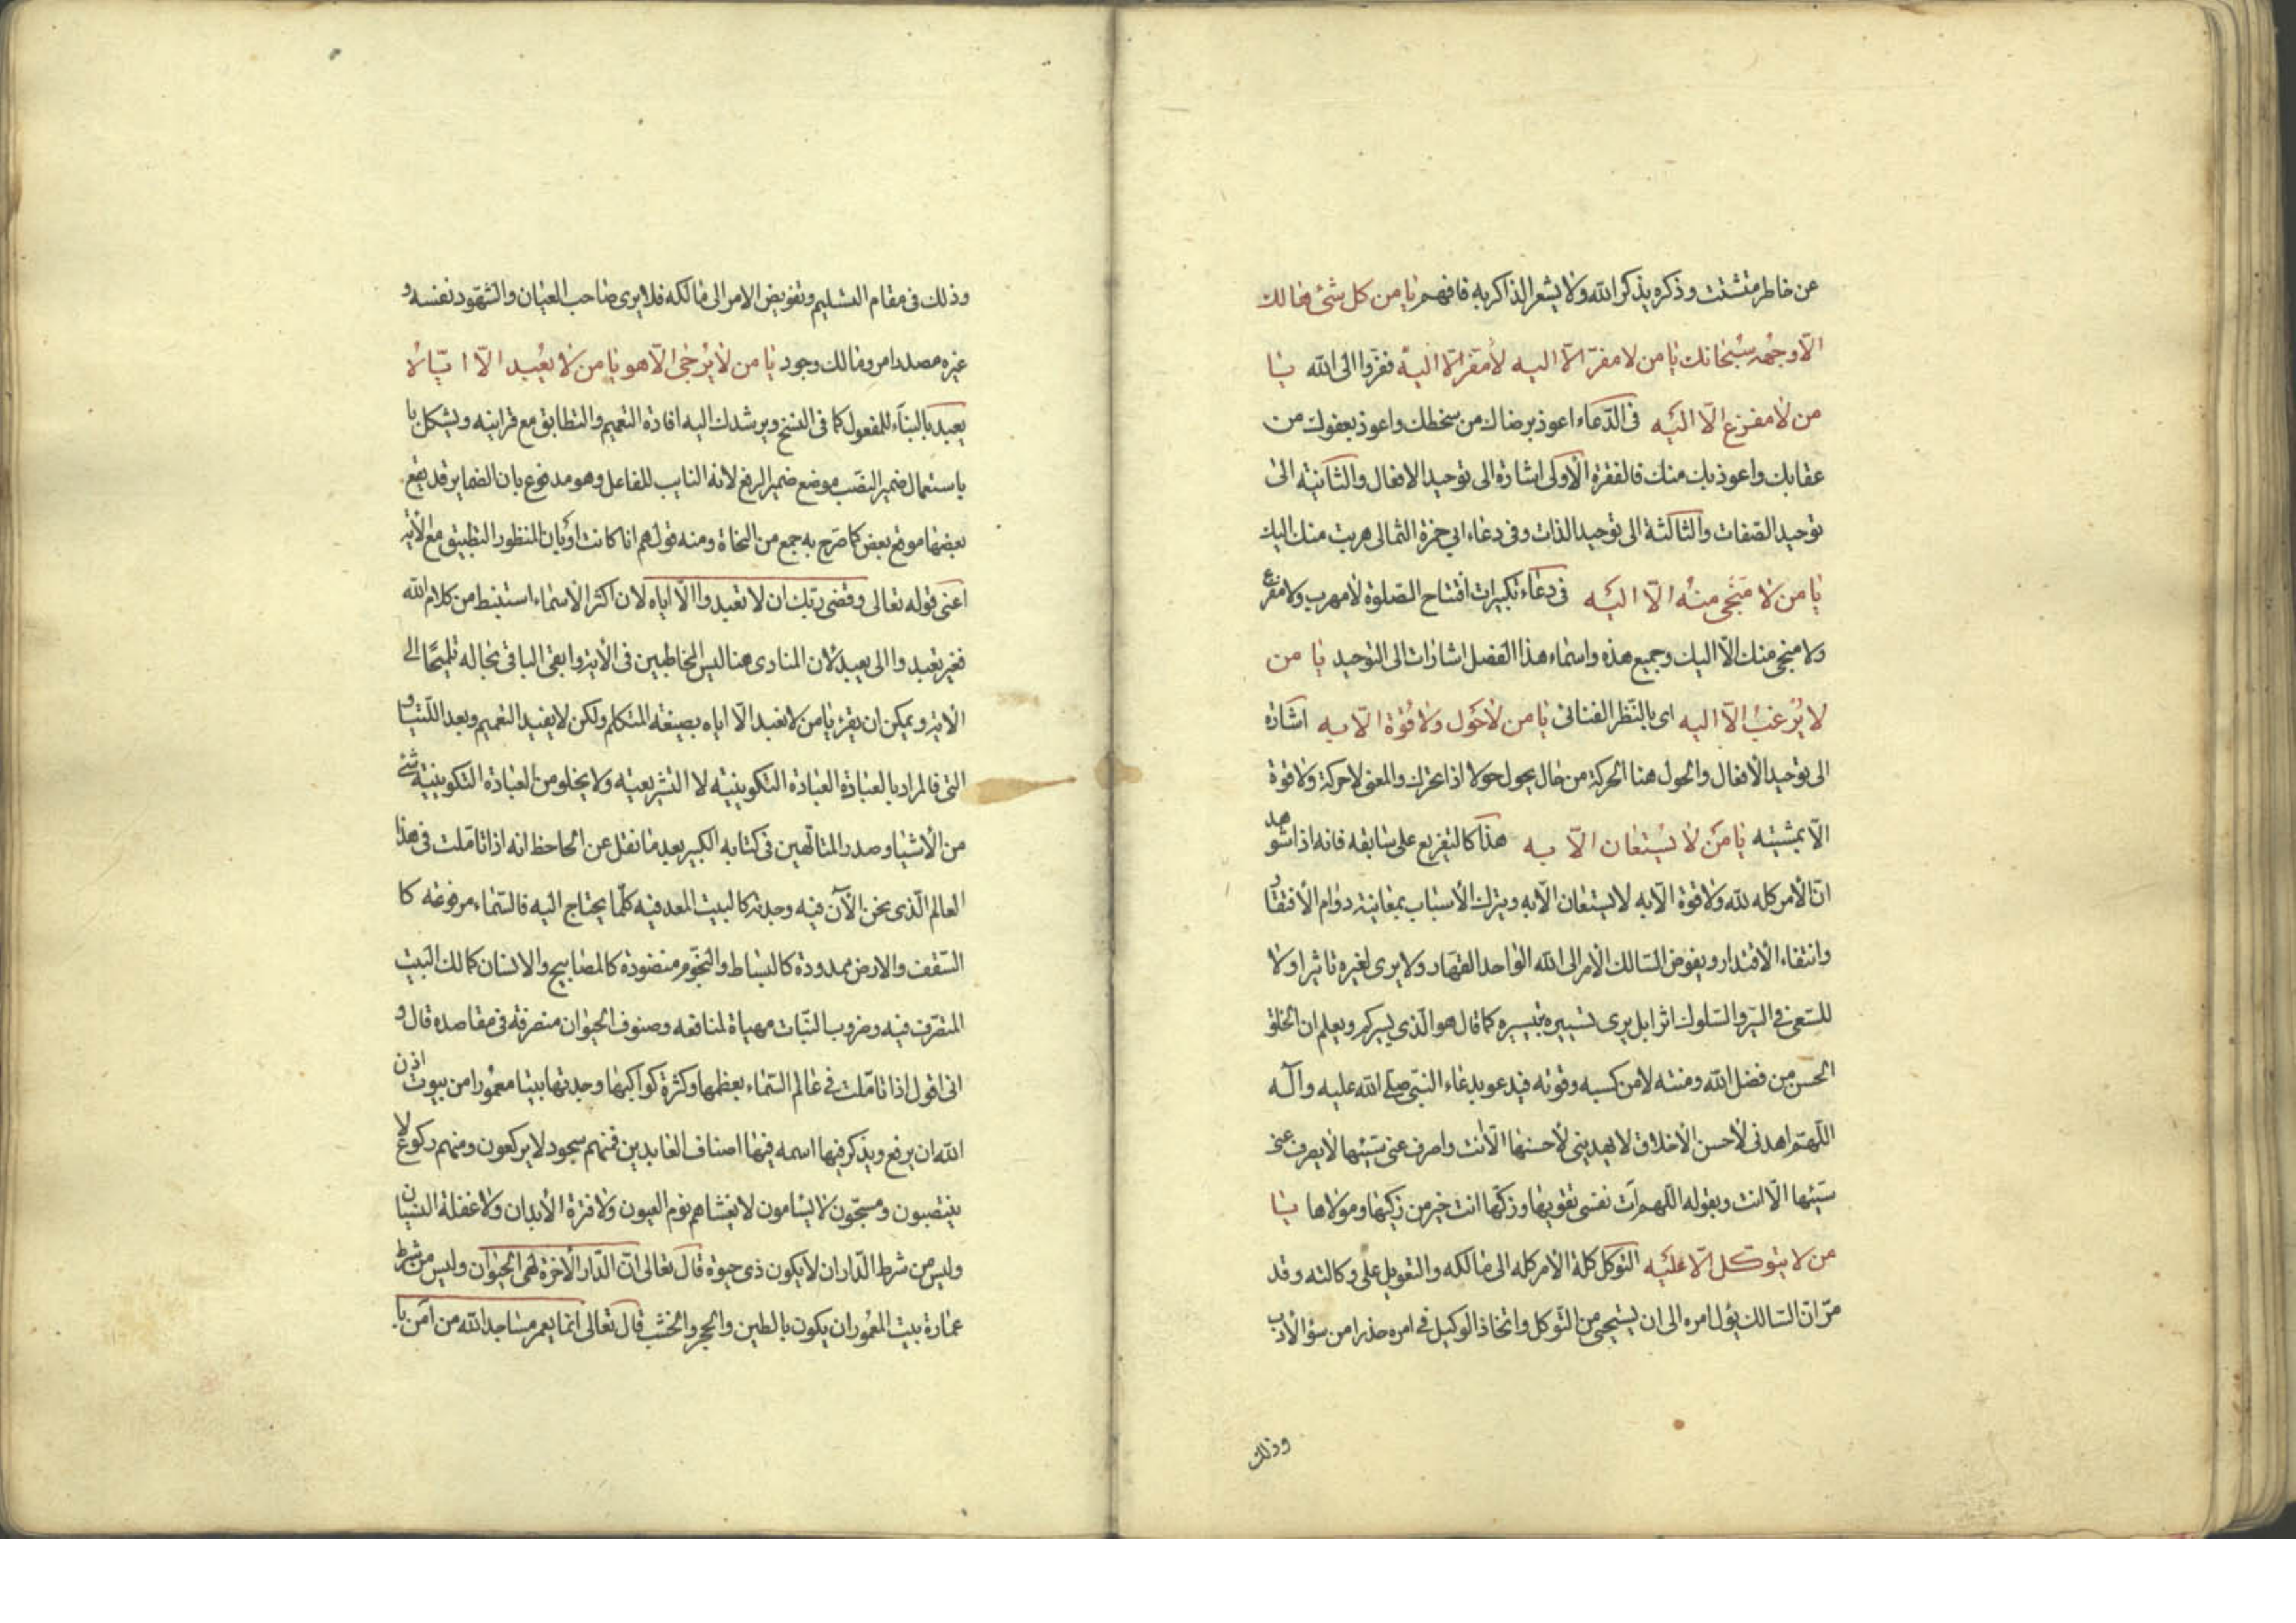 عن خاطر متشتت وذكره يذكر الله ولا يشعر الذاكر به فافهم يا من كل شئ هالك
الّا وجهه سبحانك يا من لا مفرّ الّا اليه لا مقر الّا اليه ففرّوا الى الله يا
من لا مفزع الّا اليه فى الدّعاء اعوذ برضاك من سخطك واعوذ بعفوك من
عقابك واعوذ بك منك فالفقرة الأولى اشارة الى توحيد الافعال والثانية الى
توحيد الصّفات والثالثة الى توحيد الذات وفى دعاء ابي حمزة الثمالى هربت منك اليك
يا من لا منجى منه الّا اليه فى دعاء تكبيرات افتتاح الصّلوة لا مهرب ولا مفزع
ولا منجى منك الّا اليك وجميع هذه واسماء هذا الفصل اشارات الى التوحيد يا من
لا يُرغبُ الّا اليه اى بالنّظر الفنائى يا من لا حَول ولا قُوّة الّا به اشارة
الى توحيد الأفعال والحول هنا الحركة من حال يحول حولا اذا تحرك والمعنى لا حركة ولا قوة
الّا بمشيته يا مَن لا يُستعان الّا به هذا كالتفريع على سابقه فانه اذا شوهد
انّ الأمر كله لله ولا قوة الّا به لا يستعان الّا به ويترك الأسباب بمعاينة دوام الأفتقار
وانتفاء الأقتدار ويفوض السّالك الأمر الى الله الواحد القهار ولا يرى لغيره تاثيرا ولا
للسّعى في السّير والسّلوك اثرا بل يرى تسييره بتيسيره كما قال هو الّذى يسيركم ويعلم ان الخلق
الحسن من فضل الله ومنته لا من كسبه وقوته فيدعو بدعاء النبىّ صلى الله عليه وآله
اللّهمّ اهدنى لأحسن الأخلاق لا يهدينى لأحسنها الّا انت واصرف عنى سيّئها لا يصرف عنى
سيّئها الّا انت وبقوله اللّهم آت نفسى تقويها وزكّها انت خير من زكّيها ومولاها يا
من لا يتوكّل الّا عليه التوكل كلة الأمر كله الى مالكه والتعويل على وكالته وقد
مرّ انّ السّالك يؤل امره الى ان يستحيى من التّوكل واتخاذ الوكيل في امره حذرا من سؤ الأدب
وذلك
وذلك فى مقام التسليم وتفويض الامر الى مالكه فلا يرى صاحب العيان والشهود نفسه و
غيره مصدر امر ومالك وجود يا من لا يُرجى الّا هو يا من لا يعُبد الّا ايّاه لا
يعبد بالبناء للمفعول كما فى النسخ ويرشدك اليه افادة التعميم والتطابق مع قرانيه ويشكل با
باستعمال ضمير النصب موضع ضمير الرفع لانه النايب للفاعل وهو مدفوع بان الضماير قد يقع
بعضها موقع بعض كما صرّح به جمع من النحاة ومنه قولهم انا كانت او بان المنظور التطبيق مع الأية
اعنى قوله تعالى وقضى ربّك ان لا تعبدوا الّا اياه لان اكثر الأسماء استنبط من كلام الله
فغير تعبدوا الى يعبد لان المنادى هنا ليس المخاطبين فى الأية وابقى الباقى بحاله تلميحًا الى
الأية ويمكن ان يقرء يا من لا نعبد الّا اياه بصيغة المتكلم ولكن لا يفيد التعميم وبعد اللّتيا و
التى فالمراد بالعبادة العبادة التكوينية لا التشريعية ولا يخلو من العبادة التكوينية شئ
من الأشيا وصدر المتالّهين فى كتابه الكبير بعد ما نقل عن الجاحظ انه اذا تاملت فى هذا
العالم الّذى نحن الآن فيه وجدته كالبيت المعد فيه كلّما يحتاج اليه فالسّماء مرفوعة كا
السّقف والارض ممدودة كالبساط والنجوم منضودة كالمصابيح والانسان كمالك البيت
المتصّرف فيه وضروب النّبات مهياة لمنافعه وصنوف الحيوان منصرفة فى مقاصده قال و
انى اقول اذا تاملت في عالم السّماء بعظمها وكثرة كواكبها وجدتها بيتا معمُورا من بيوت اذن
الله ان يرفع ويذكر فيها اسمه فيها اصناف العابدين فمنهم سجود لا يركعون ومنهم ركوع لا
ينتصبون ومسبّحون لا يسأمون لا يغشاهم نوم العيون ولا فترة الأبدان ولا غفلة النسيان
وليس من شرط الدّار ان لا يكون ذى حيوة قال تعالى انّ الدّار الأخرة لهى الحيَوان وليس من شرط
عمارة بيت المعمُور ان يكون بالطين والحجر والخشب قال تعالى انما يعمر مساجد الله من آمن با